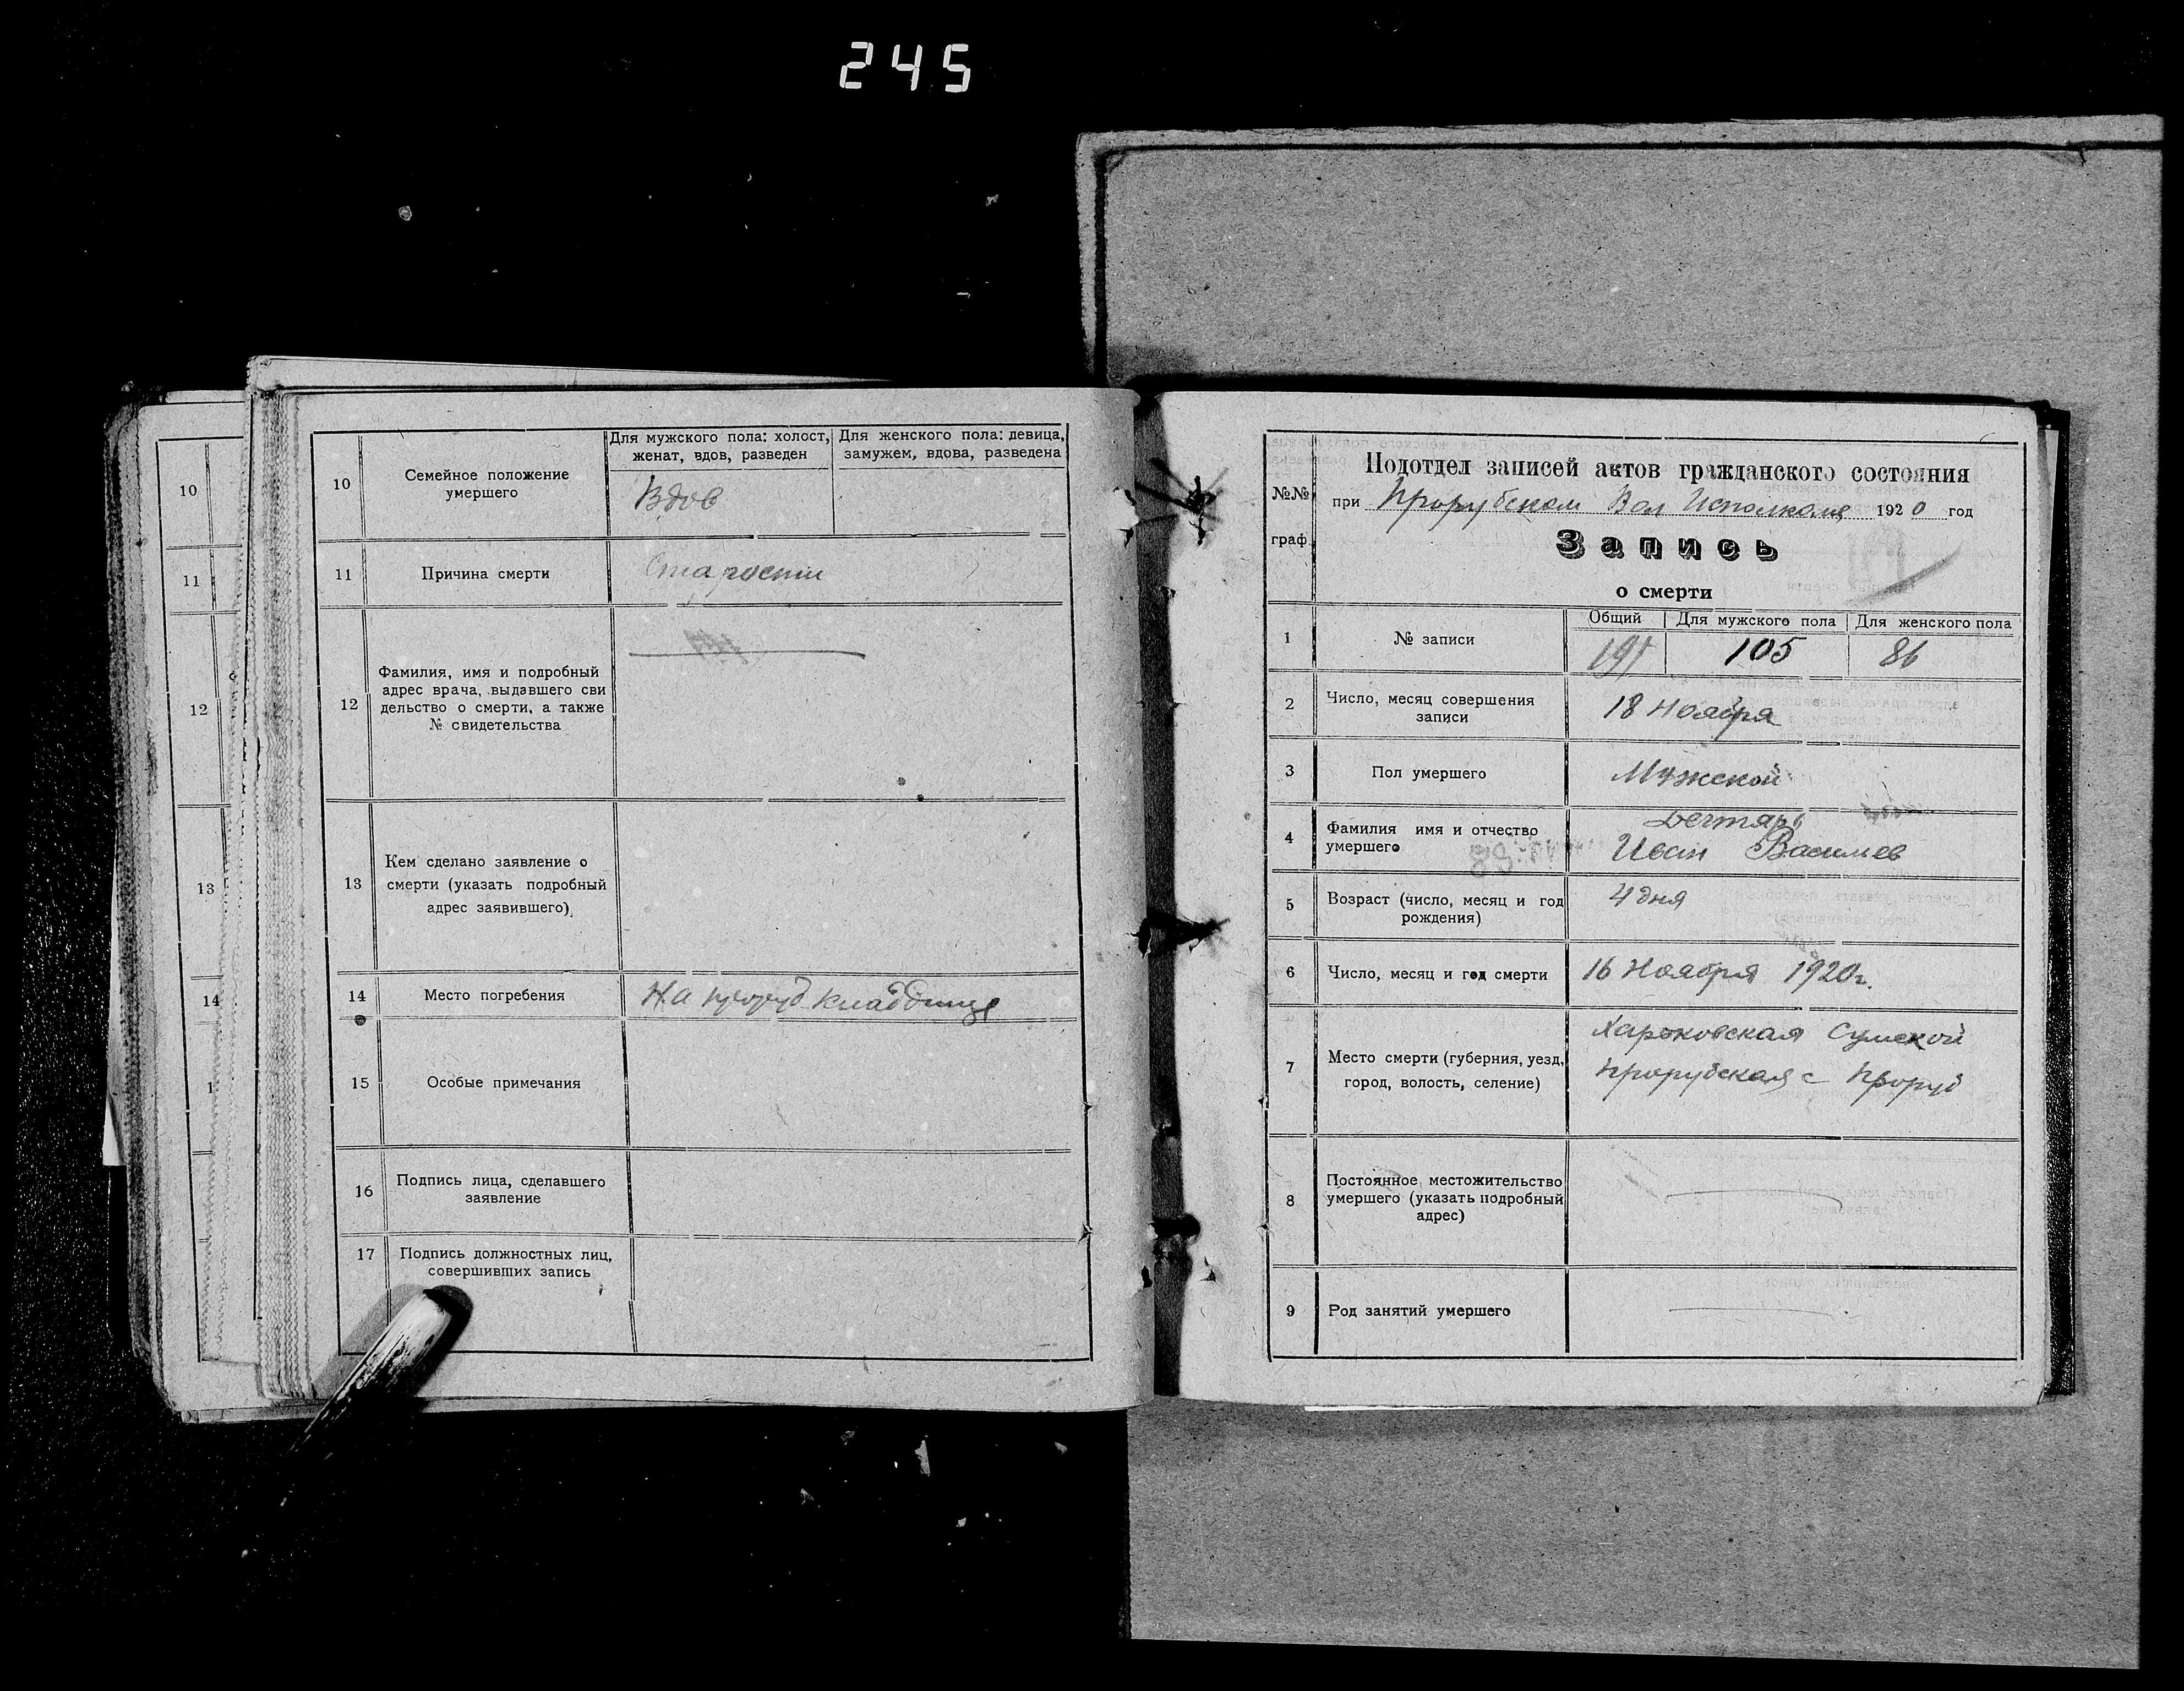 245
10
11
12
13
14
1
10
Семейное положение
умершего
Для мужского пола: холост,
женат, вдов, разведен
Для женского пола: девица,
замужем, вдова, разведена
Вдов
11
Причина смерти
Старости
12
Фамилия, имя и подробный
адрес врача, выдавшего сви
дельство о смерти, а также
№ свидетельства
13
Кем сделано заявление о
смерти (указать подробный
адрес заявившего)
14
Место погребения
На проруб кладбище
15
Особые примечания
16
Подпись лица, сделавшего
заявление
17
Подпись должностных лиц,
совершивших запись
№№
граф
Подотдел записей актов гражданского состояния
при Прорубском Вол Исполкоме 1920 год
Запись
о смерти
1
№ записи
Общий
Для мужского пола
Для женского пола
191
105
86
2
Число, месяц совершения
записи
18 Ноября
3
Пол умершего
Мужской
4
Фамилия имя и отчество
умершего
Дегтярь
Иван Васильев
5
Возраст (число, месяц и год
рождения)
4 дня
6
Число, месяц и год смерти
16 Ноября 1920г.
7
Место смерти (губерния, уезд,
город, волость, селение)
Харьковская Сумской
Прорубская с Проруб
8
Постоянное местожительство
умершего (указать подробный
адрес)
9
Род занятий умершего